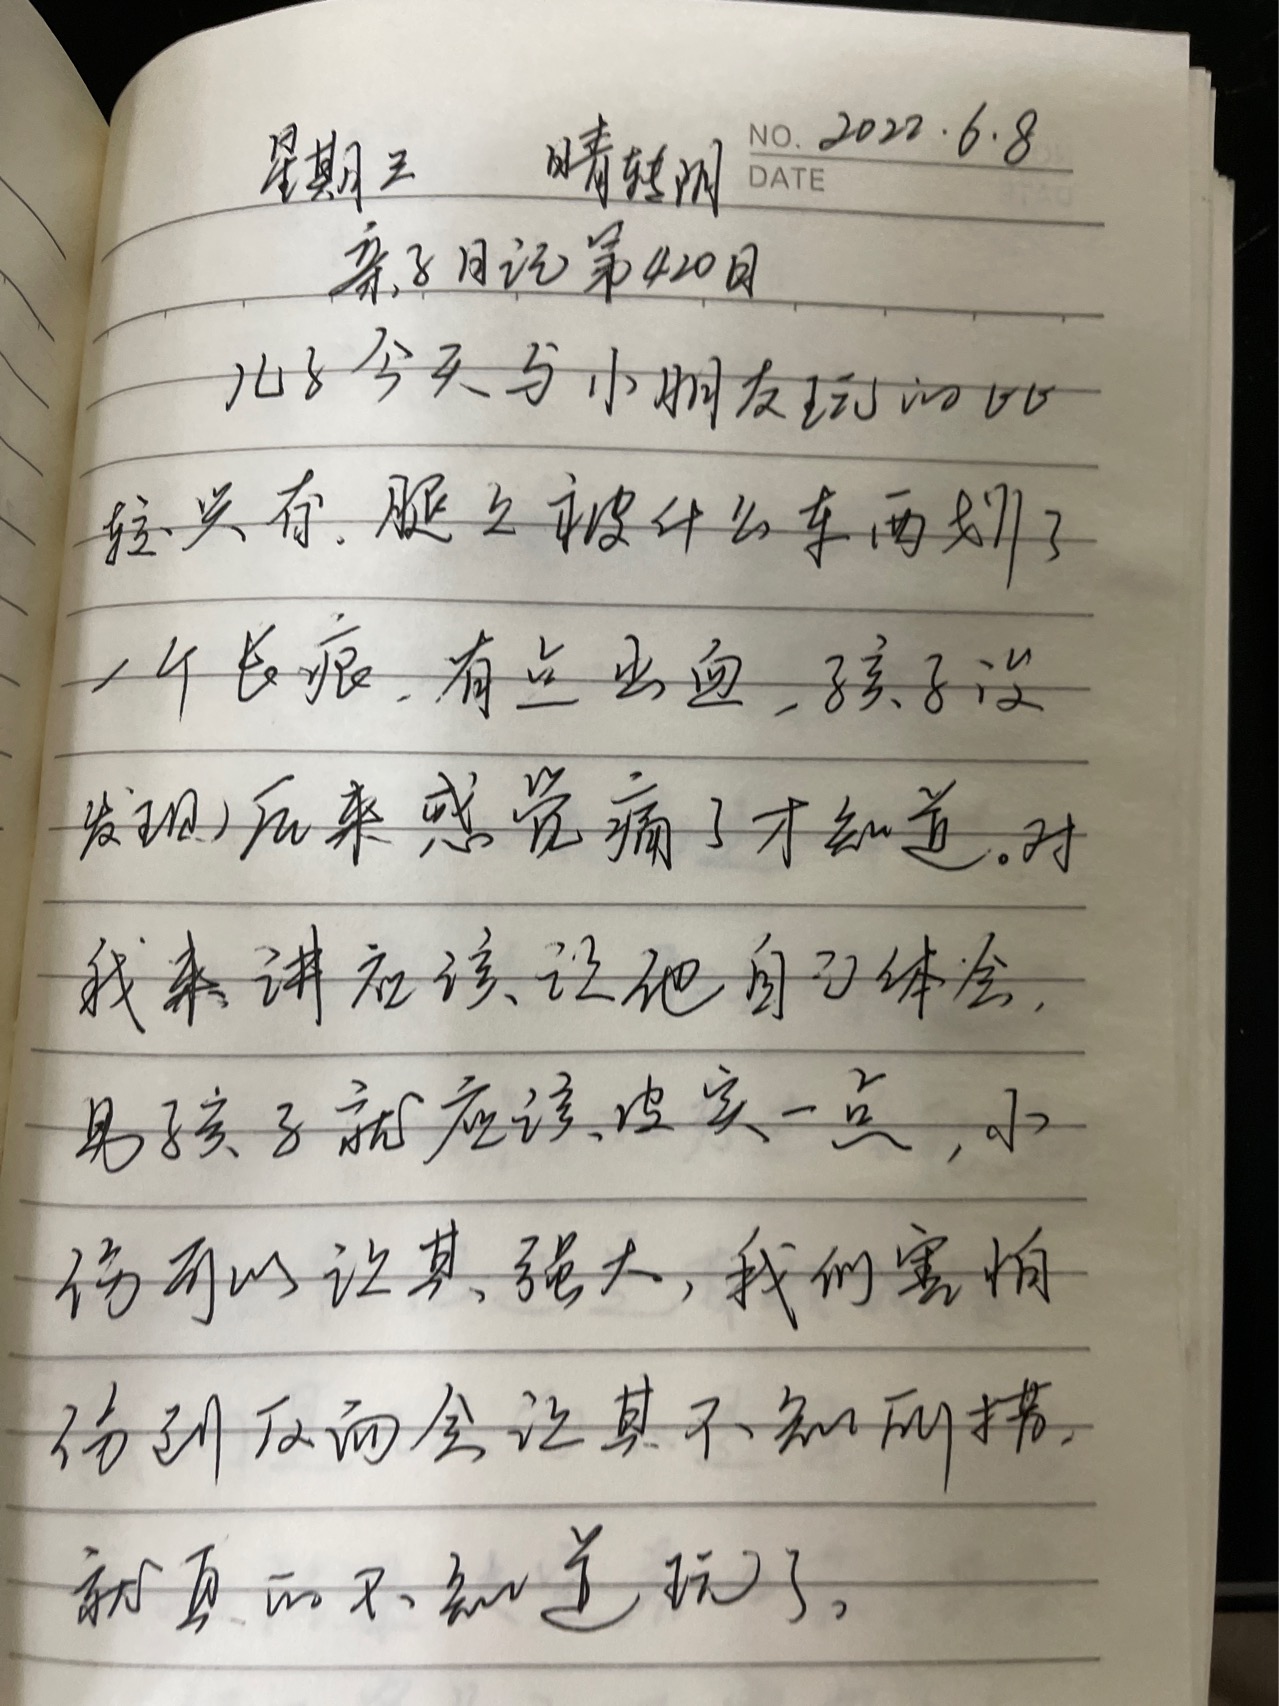 NO. 2022.6.8
DATE
星期三 晴转阴
亲子日记第420日
儿子今天与小朋友玩的比
较兴奋.腿上被什么东西划了
一个长痕.有点出血,孩子没
发现,后来感觉痛了才知道。对
我来讲应该让他自己体会,
男孩子就应该皮实一点,小
伤可以让其强大,我们害怕
伤到反而会让其不知所措.
就真的不知道玩了。